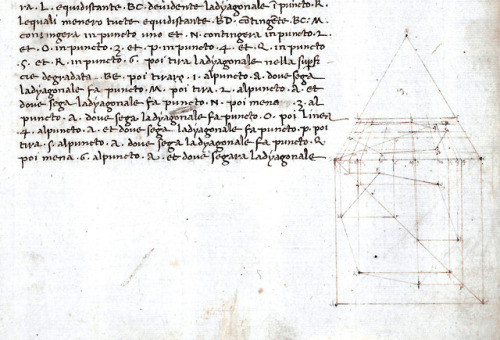 ra. L. equidistante. BC. devidente ladyagonale in puncto. R.
lequali menero tucte equidistante. BD. contingente. BC. M
contingera in puncto uno et. N. contingera in puncto. 2.
et. O. in puncto. 3. et. P. in puncto. 4. et. Q. in puncto
.5. et. R. in puncto. 6. poi tira ladyagonale nella superfi
cie degradata BE. poi tiraro .1. alpuncto. A. dove sega
ladyagonale fa puncto. M. poi tira. 2. alpuncto. A. et
dove sega ladyagonale fa puncto. N. poi mena .3. al
puncto. A. dove sega ladyagonale fa puncto. O. poi linea
.4. alpuncto. A. et dove sega ladyagonale fa puncto. P. poi
tira .5. alpuncto. A. dove sega ladyagonale fa puncto. Q.
poi mena. 6. alpuncto. A. et dove segara ladyagonale